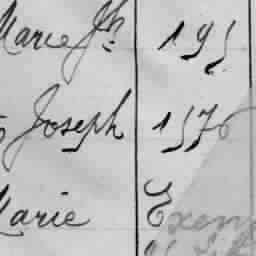 Marie Jh 195
Joseph 1576
Marie Exem